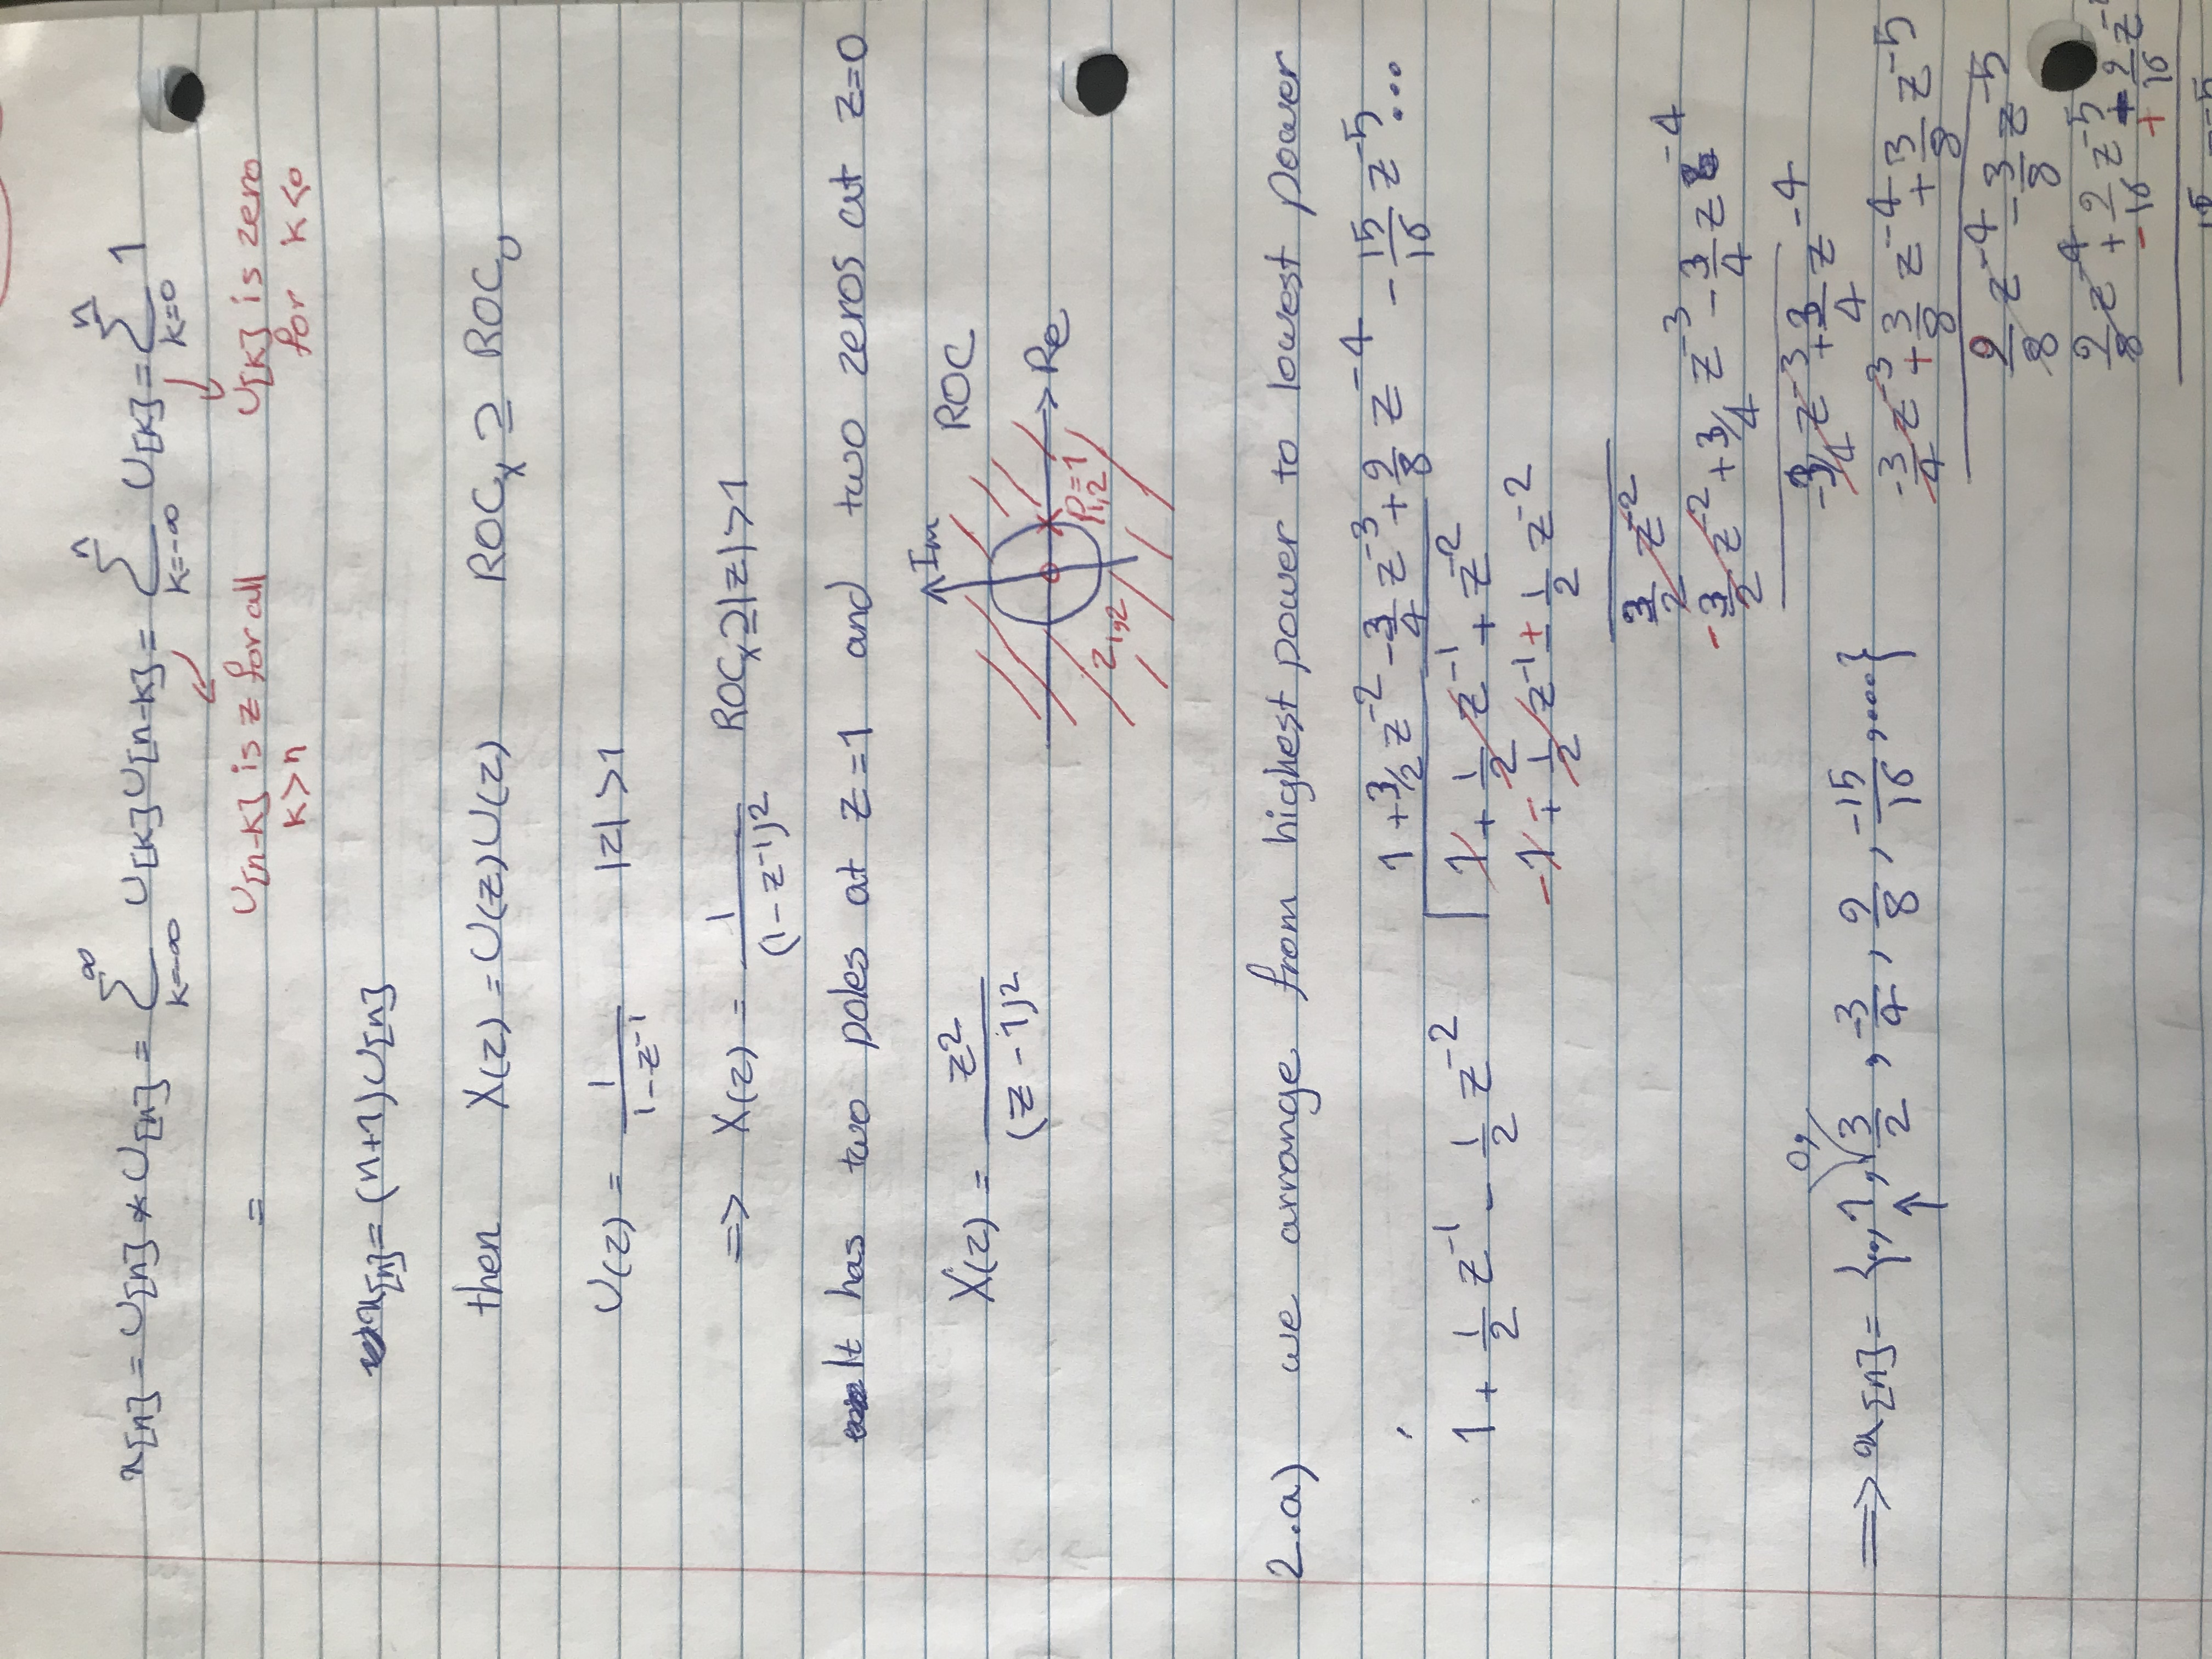 x[n] = U[n] * U[n] = ∑_{k=-∞}^{∞} U[k]U[n-k] = ∑_{k=-∞}^{n} U[k] = ∑_{k=0}^{n} 1
= U[n-k] is z for all k>n U[k] is zero for k<0
x[n] = (n+1)U[n]
then X(z) = U(z)U(z) ROC_X ⊇ ROC_U
U(z) = 1/(1-z^{-1}) |z|>1
⇒ X(z) = 1/(1-z^{-1})^2 ROC_X ⊇ |z|>1
It has two poles at z=1 and two zeros at z=0
X(z) = z^2/(z-1)^2
Im
ROC
Re
P_{1,2}=1
z_{1,2}
2.a) we arrange from highest power to lowest power
1 + 3/2 z^{-2} - 3/4 z^{-3} + 9/8 z^{-4} - 15/16 z^{-5}...
1 + 1/2 z^{-1} - 1/2 z^{-2} 1 + 1/2 z^{-1} + z^{-2}
-1 ∓ 1/2 z^{-1} ± 1/2 z^{-2}
3/2 z^{-2}
- 3/2 z^{-2} + 3/4 z^{-3} - 3/4 z^{-4}
-3/4 z^{-3} + 3/4 z^{-4}
-3/4 z^{-3} + 3/8 z^{-4} + 3/8 z^{-5}
⇒ x[n] = {.., 1, 0, 3/2, -3/4, 9/8, -15/16, ....}
↑
9/8 z^{-4} - 3/8 z^{-5}
9/8 z^{-4} + 9/16 z^{-5} + 9/16 z
- +